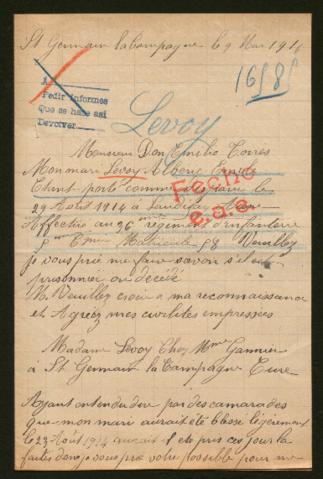 St Germain la Campagne le 9 Mai 1916
A
Pedir informes
Que se hace así
Devolver
Levoy
Monsieur Don Emilio Torres
Mon mari Levoy Albéric Emile
Etant porté comme le
29 Août 1914 à
Affecté au 36 ème régiment d'infanterie
8 ème Cie Matricule Veuillez
je vous prie me faire savoir s'il est
prisonnier ou décédé
M. Veuillez croire a ma reconnaissance
et Agréez mes civilités empressées
Madame Levoy Chez Mme
à St Germain la Campagne Eure
Ayant entendu dire par des camarades
que mon mari aurait été blessé légèrement
le 23 Août 1914 aurait été pris ce jour la
faites donc je vous prie votre possible pour me
Fecho
e.a.a.